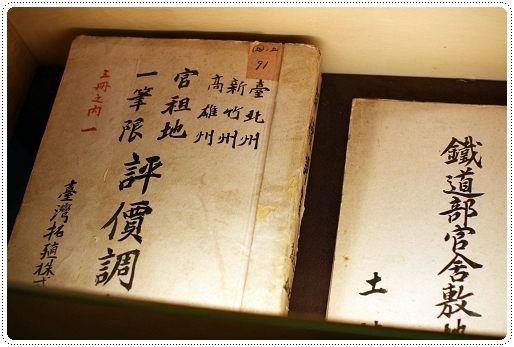 91
臺北州
新竹州
高雄州
官租地
一筆限評價調
冊之內 一
臺灣拓殖株式
鐵道部官舍敷地
土